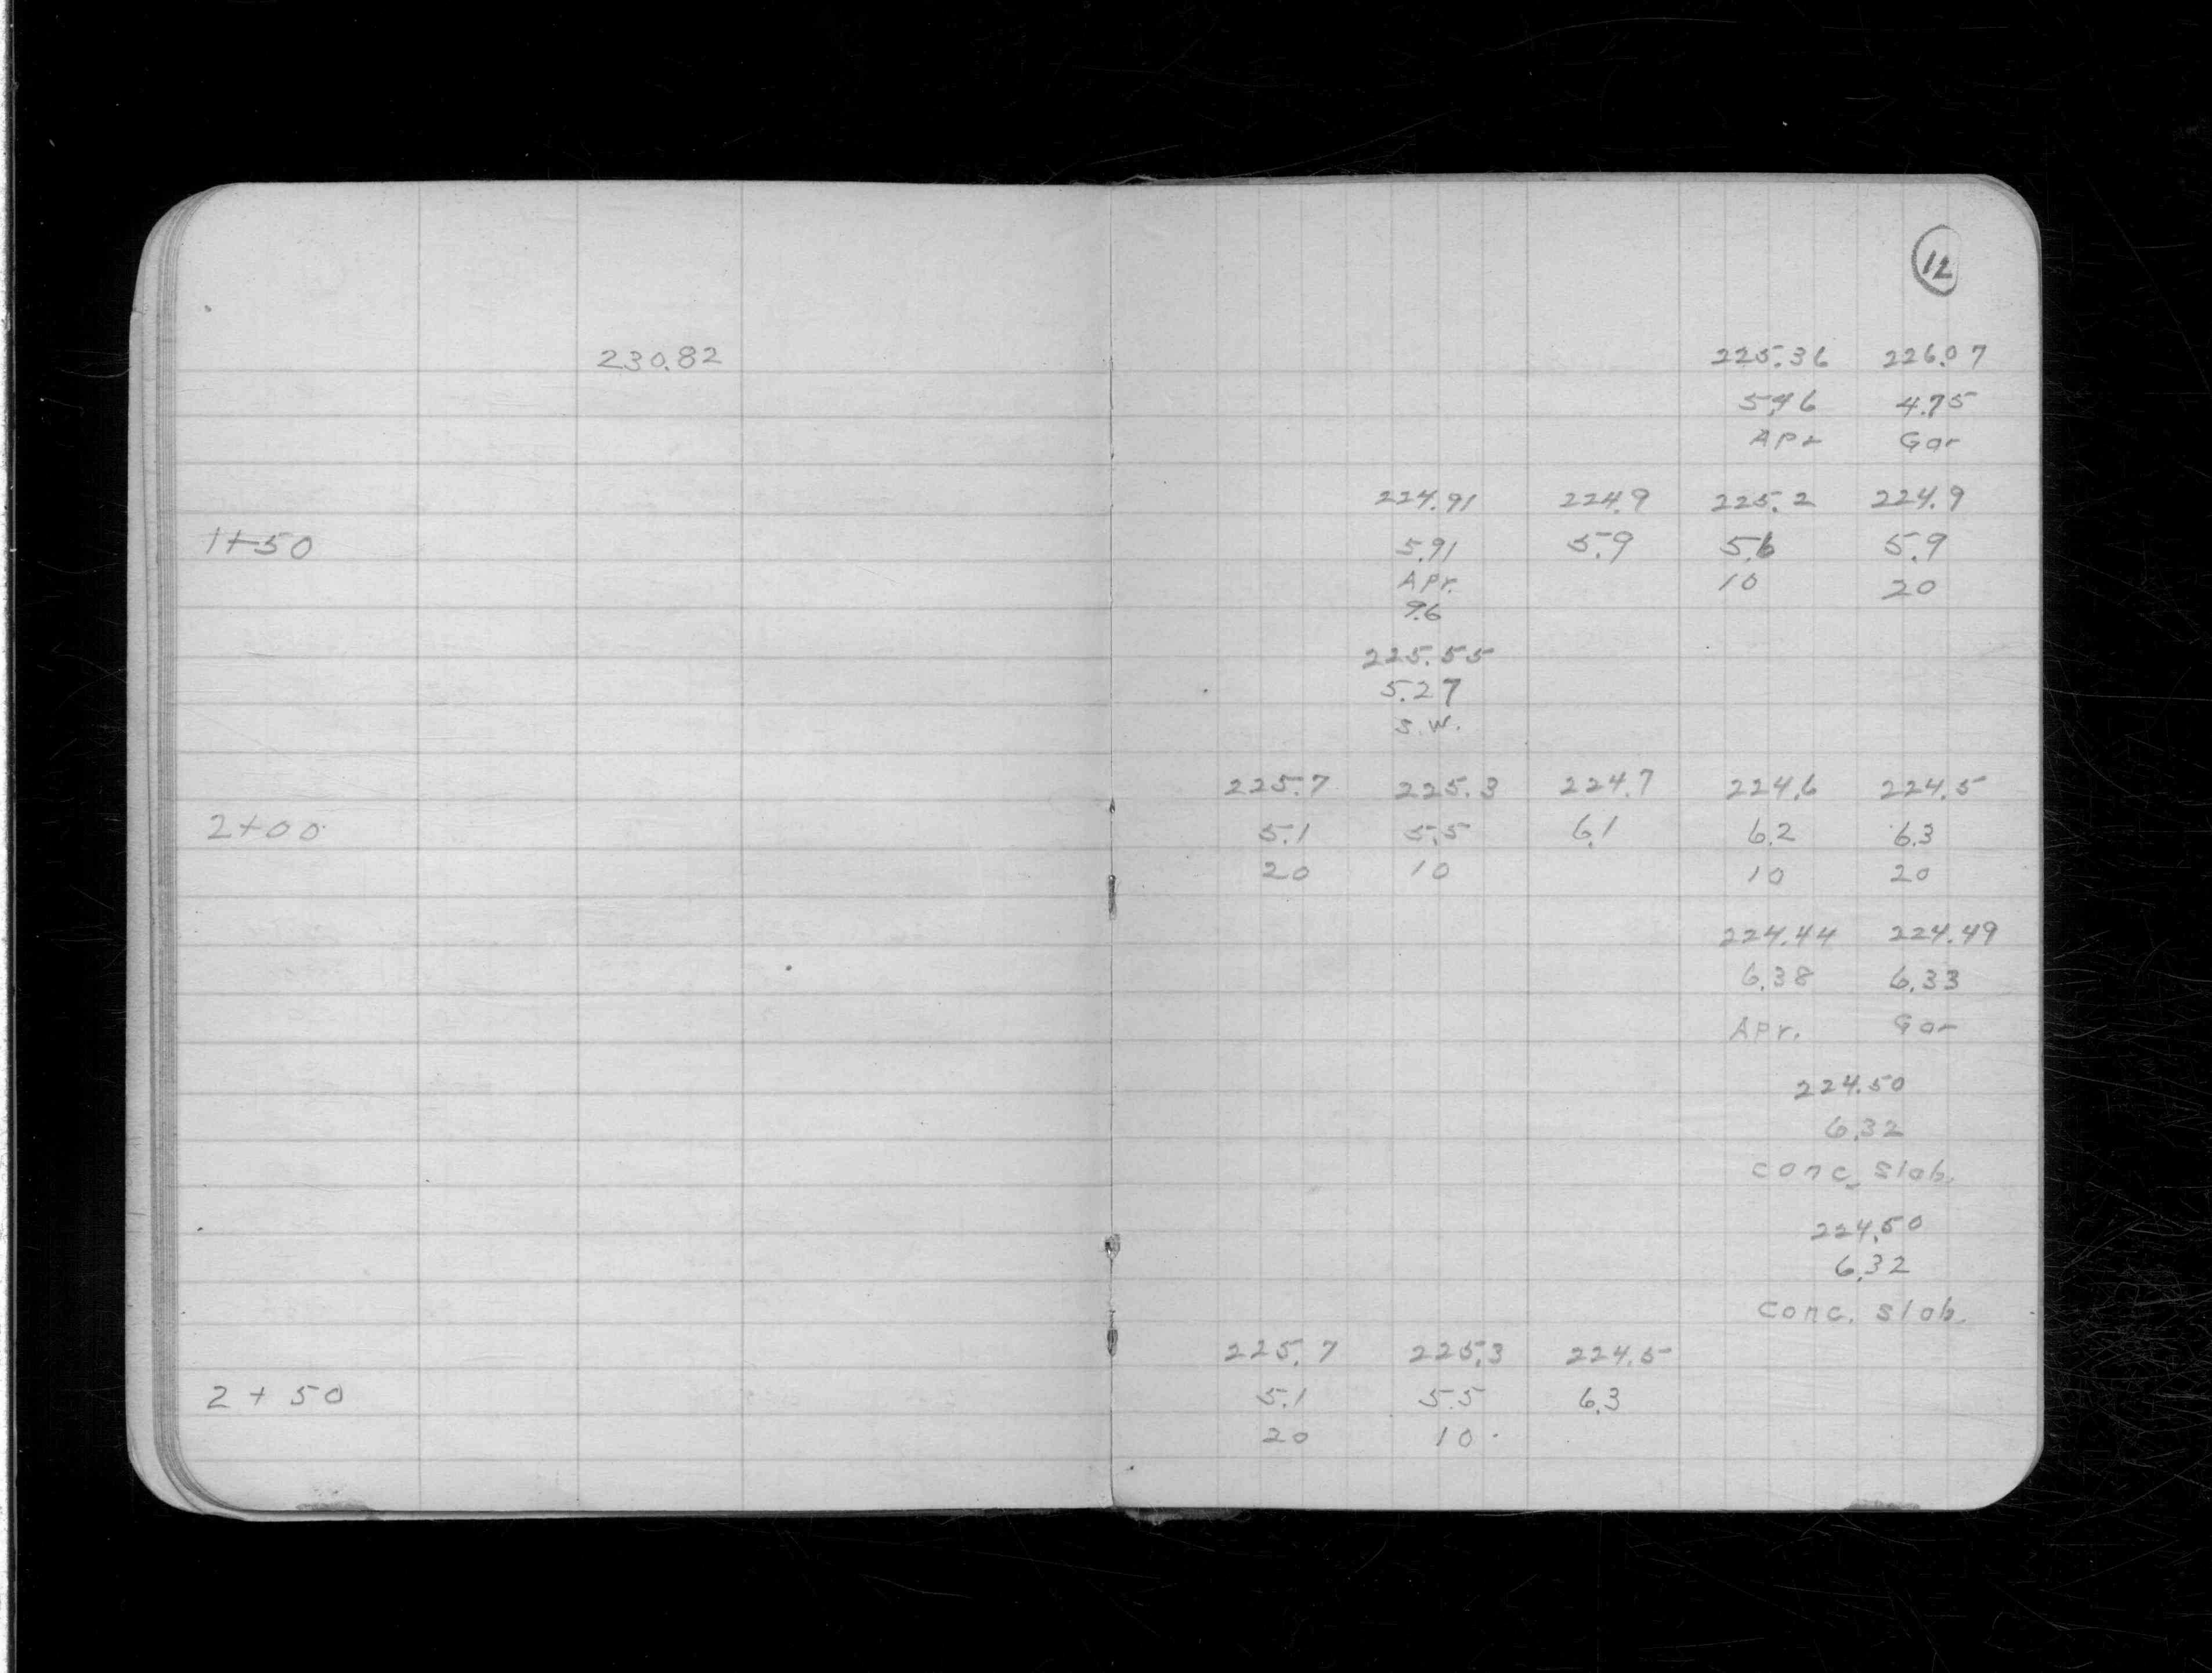 12
230.82 225.36 226.07
5.46 4.75
Apr Gar
224.91 224.9 225.2 224.9
1+50 5.91 5.9 5.6 5.9
Apr. 10 20
9.6
225.55
5.27
S.W.
225.7 225.3 224.7 224.6 224.5
2+00 5.1 5.5 6.1 6.2 6.3
20 10 10 20
224.44 224.49
6.38 6.33
Apr. Gar
224.50
6.32
conc. slab.
224.50
6.32
conc. slab.
225.7 225.3 224.5
2+50 5.1 5.5 6.3
20 10